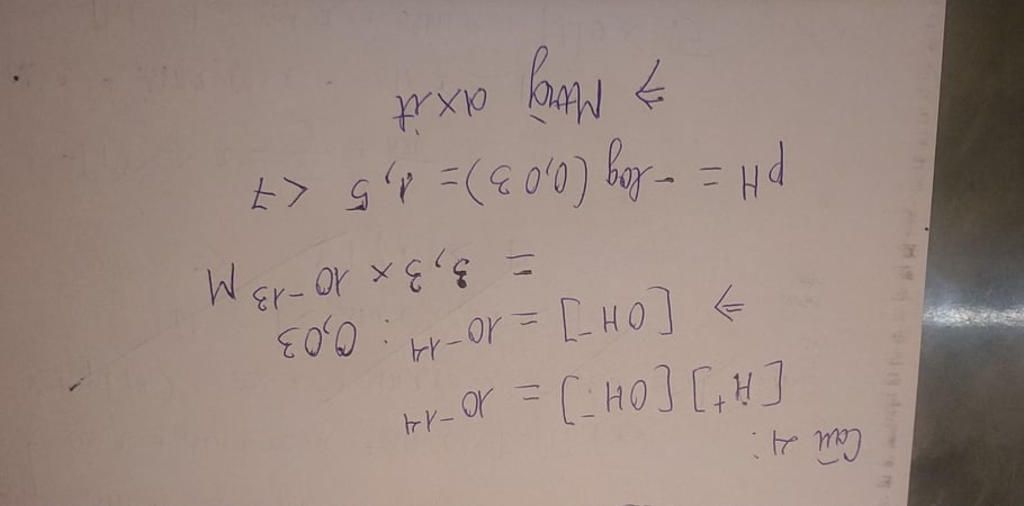 Câu 4:
[H⁺][OH⁻] = 10⁻¹⁴
⇒ [OH⁻] = 10⁻¹⁴ : 0,03
= 3,3 × 10⁻¹³ M
pH = -log(0,03) = 1,5 < 7
⇒ Mtrường axit